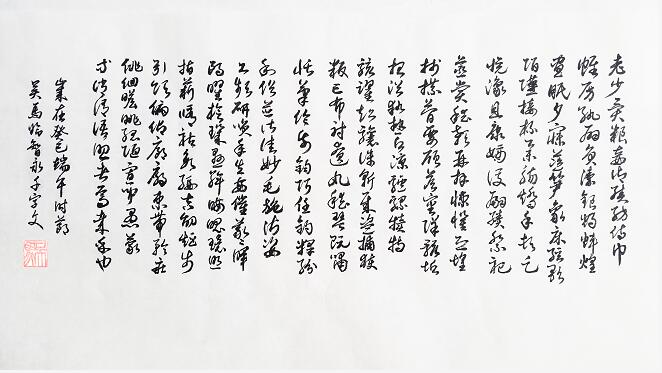 老少異粮妾御績紡侍巾
帷房紈扇員潔銀燭煒煌
晝眠夕寐藍笋象床絃歌
酒讌接杯舉觴矯手頓足
悅豫且康嫡後嗣續祭祀
蒸嘗稽顙再拜悚懼恐惶
牋牒簡要顧答審詳骸垢
想浴執熱願涼驢騾犢特
駭躍超驤誅斬賊盜捕獲
叛亡布射遼丸嵇琴阮嘯
恬筆倫紙鈞巧任釣釋紛
利俗並皆佳妙毛施淑姿
工嚬妍笑年矢每催曦暉
朗曜琁璣懸斡晦魄環照
指薪脩祜永綏吉劭矩步
引領俯仰廊廟束帶矜莊
徘徊瞻眺孤陋寡聞愚蒙
等誚謂語助者焉哉乎也
歲在癸巳端午時節
吴馬临智永千字文